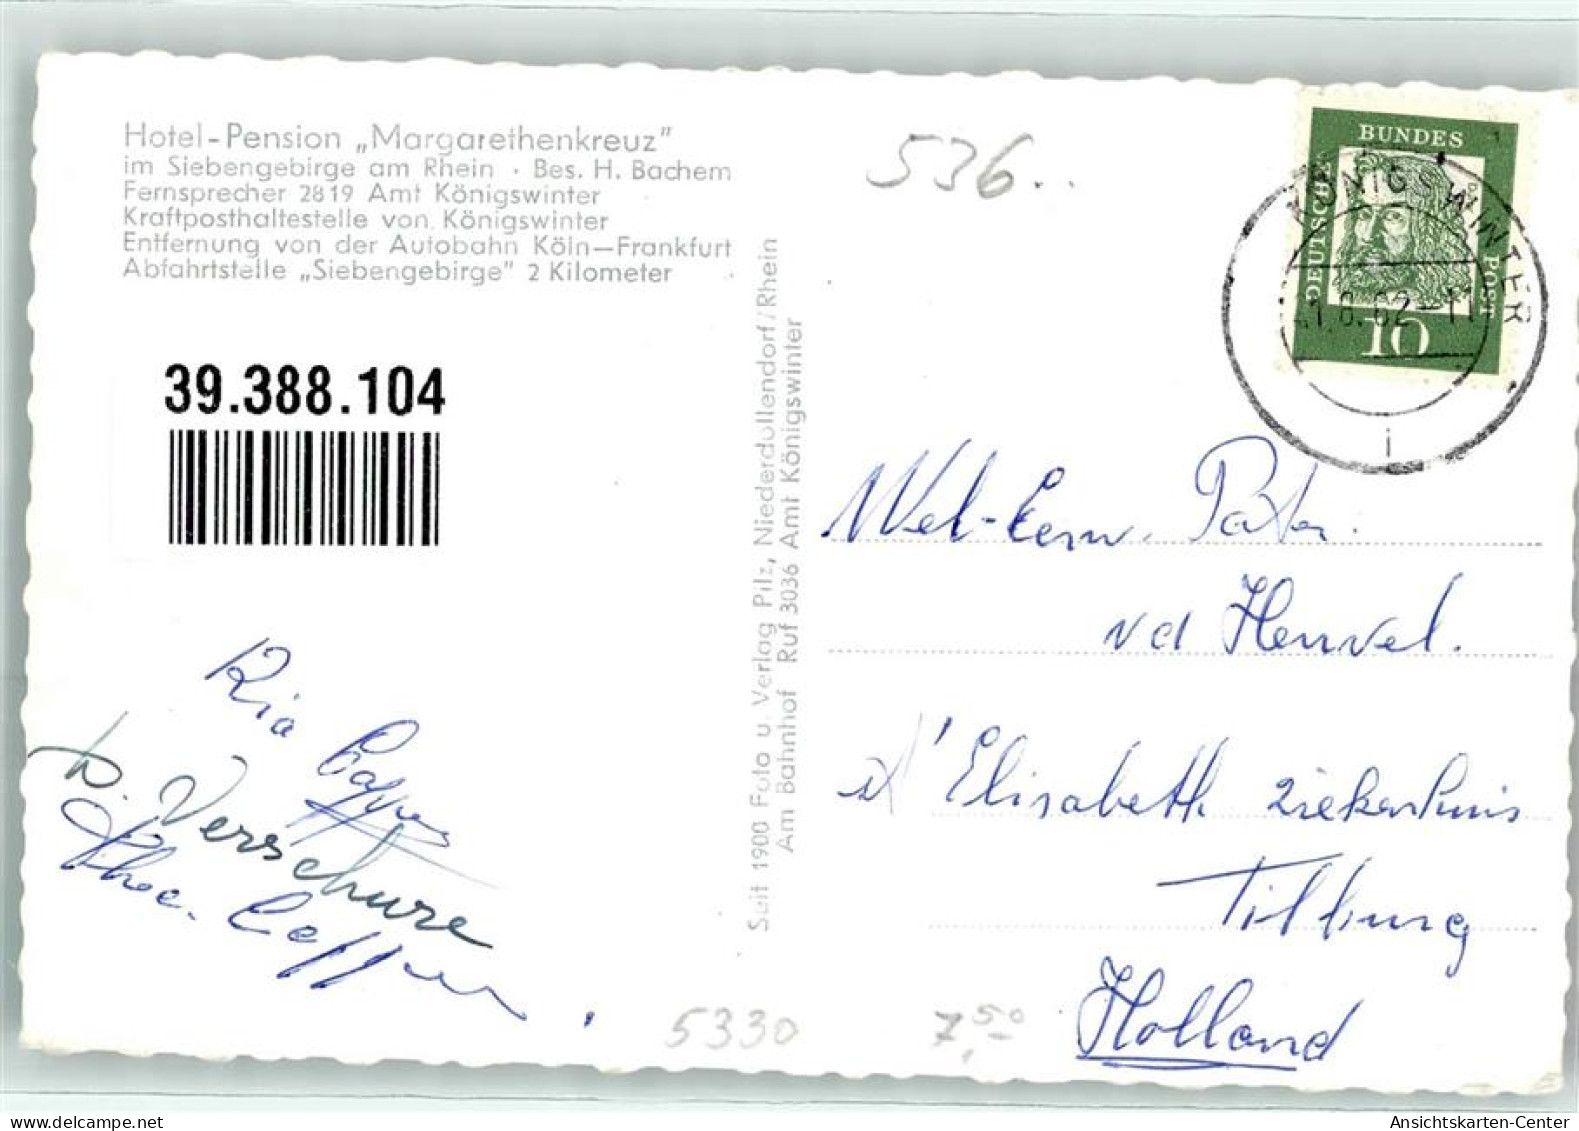 Hotel-Pension „Margarethenkreuz"
im Siebengebirge am Rhein · Bes. H. Bachem
Fernsprecher 2819 Amt Königswinter
Kraftposthaltestelle von Königswinter
Entfernung von der Autobahn Köln—Frankfurt
Abfahrtstelle „Siebengebirge" 2 Kilometer
536..
39.388.104
Seit 1900 Foto u. Verlag Pilz, Niederdollendorf/Rhein
Am Bahnhof Ruf 3036 Amt Königswinter
DEUTSCHE BUNDESPOST
10
KÖNIGSWINTER
1.8.62-11
i
Wel-Eerw. Pater.
vd Heuvel.
St Elisabeth Ziekenhuis
Tilburg
Holland
Ria
D. Verschure
5330
7,50
Ansichtskarten-Center